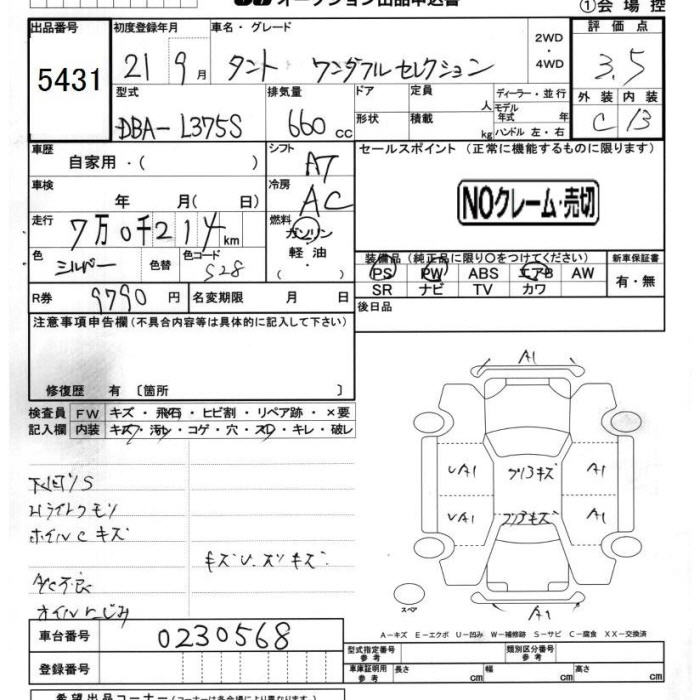 オークション出品申込書
①会場控
出品番号 初度登録年月 車名・グレード 2WD・4WD 評価点
5431 21 9月 タント ワンダフルセレクション 3.5
型式 排気量 ドア 定員 人 ディーラー・並行 外装 内装
DBA-L375S 660cc 形状 積載 kg モデル年式 年 ハンドル 左・右 C B
車歴 自家用・( ) シフト AT セールスポイント (正常に機能するものに限ります)
車検 年 月( 日) 冷房 AC NOクレーム・売切
走行 7万0千214km 燃料 ガソリン・軽油
色 シルバー 色替 色コード S28 装備品 (純正品に限り○をつけてください) 新車保証書
PS PW ABS エアB AW 有・無
SR ナビ TV カワ
R券 9790円 名変期限 月 日 後日品
注意事項申告欄 (不具合内容等は具体的に記入して下さい)
修復歴 有 〔箇所 〕
検査員 FW キズ・飛石・ヒビ割・リペア跡・×要
記入欄 内装 キズ・汚レ・コゲ・穴・スレ・キレ・破レ
下回リS
Hライトクモリ
ホイルCキズ
A/C不良
オイルにじみ
A1
UA1 A1
UA1 A1
A1
スペア
A-キズ E-エクボ U-凹み W-補修跡 S-サビ C-腐食 XX-交換済
車台番号 0230568
型式指定番号 参考 類別区分番号 参考
登録番号 車庫証明用 参考 長さ cm 幅 cm 高さ cm
希望出品コーナー (コーナーは各会場により異なります。)